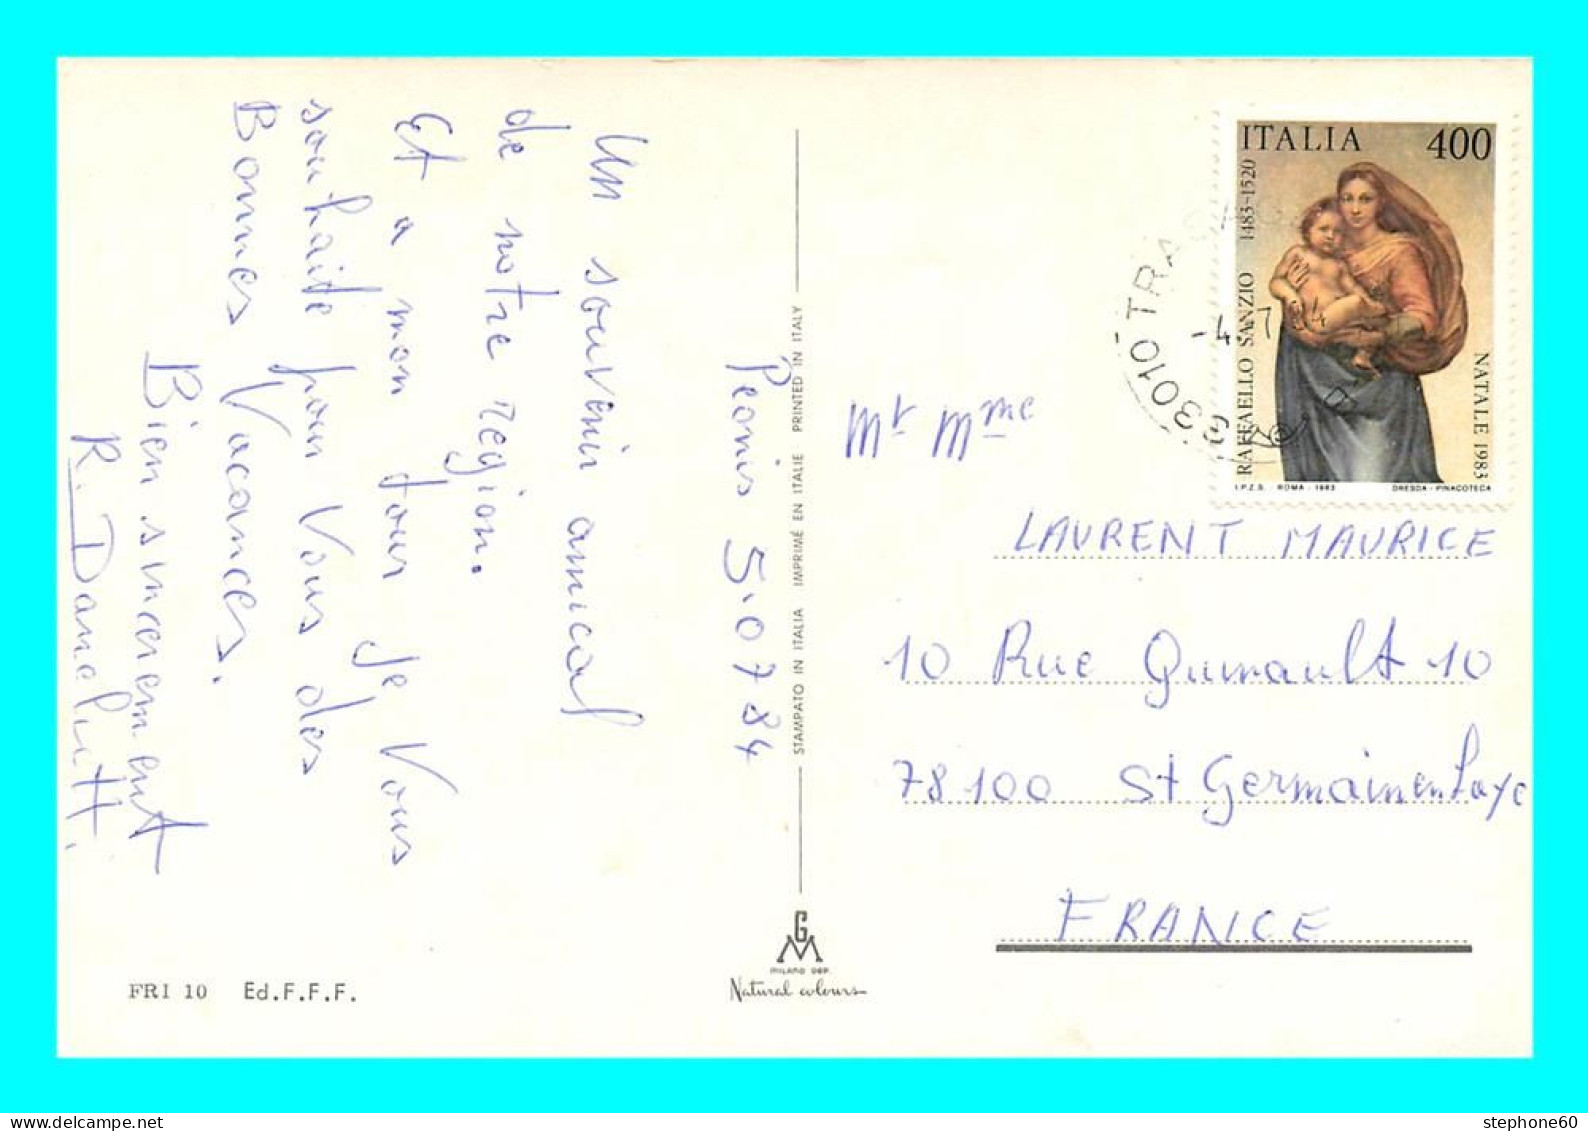 Peonis 5.07 84
Un souvenir amical
de notre region.
Et a mon tour je Vous
souhaite pour Vous des
Bonnes Vacances.
Bien sincerement
R.
FRI 10 Ed.F.F.F.
STAMPATO IN ITALIA IMPRIMÉ EN ITALIE PRINTED IN ITALY
GM
MILANO DEP.
Natural colours
ITALIA 400
RAFFAELLO SANZIO 1483-1520
NATALE 1983
I.P.Z.S. - ROMA - 1983 DRESDA - PINACOTECA
33010 TRASAGHIS
-4.7 84
Mr Mme
LAURENT MAURICE
10 Rue Quinault 10
78100 St Germain en Laye
FRANCE
stephone60